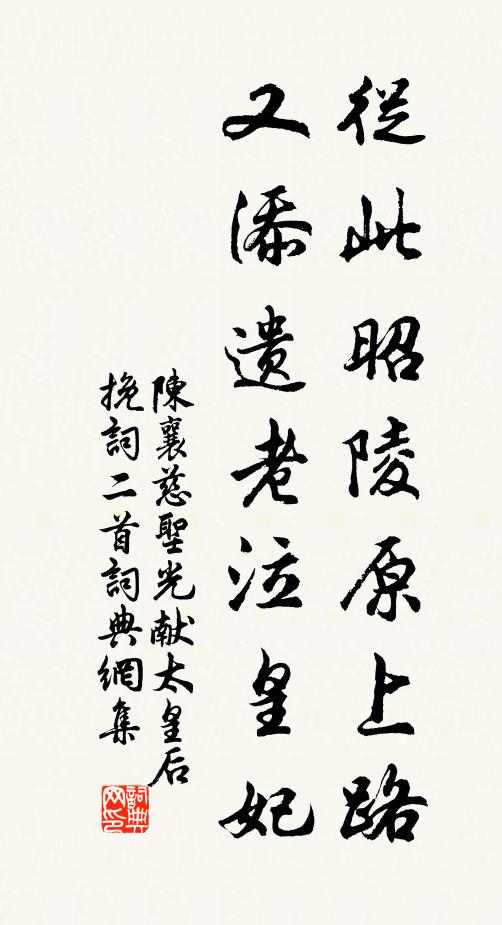 從此昭陵原上路
又添遺老泣皇妃
陳襄慈聖光献太皇后
挽詞二首詞典網集
詞典
网印